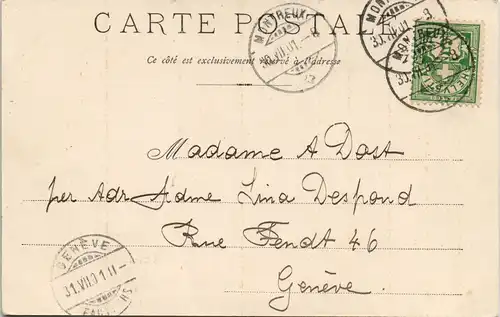 CARTE POSTALE
Ce côté est exclusivement réservé à l'adresse
MONTREUX
30.VII.01.
MONTREUX
30.VII.01.
HELVETIA
Madame A Dost
per Adr. Mdme Lina Despond
Rue Fendt 46
Genève.
GENÈVE
31.VII.01 11-